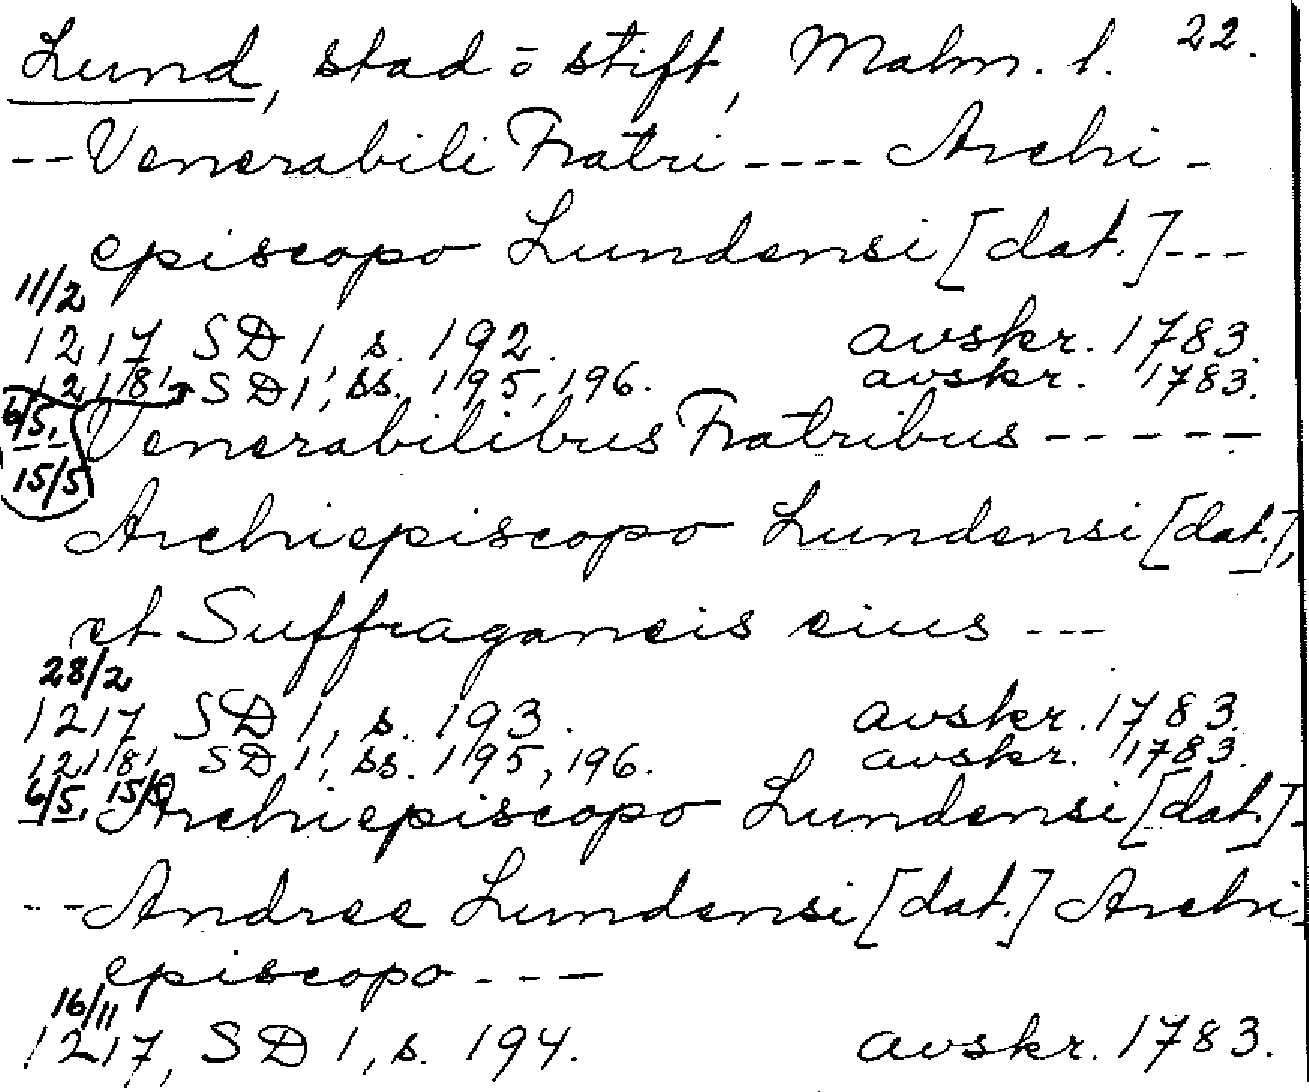 Lund, stad o stift, Malm. l. 22.
-- Venerabili Fratri ---- Archi-
episcopo Lundensi [dat.] ---
11/2
1217, SD 1 s. 192. avskr. 1783.
1218, SD 1, ss. 195, 196. avskr. 1783.
6/5, 15/5
Venerabilibus Fratribus -----
Archiepiscopo Lundensi [dat.],
et Suffraganeis eius ---
28/2
1217 SD 1, s. 193. avskr. 1783.
1218, SD 1, ss. 195, 196. avskr. 1783.
6/5, 15/5
Archiepiscopo Lundensi [dat.] -
-- Andree Lundensi [dat.] Archi-
episcopo ---
16/11
1217, SD 1, s. 194. avskr. 1783.